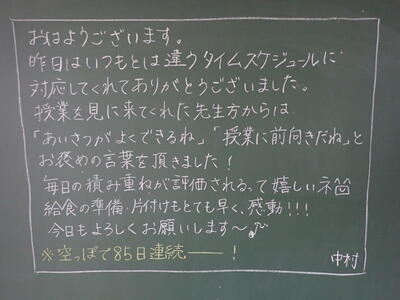 おはようございます。
昨日はいつもとは違うタイムスケジュールに
対応してくれてありがとうございました。
授業を見に来てくれた先生方からは
「あいさつがよくできるね」「授業に前向きだね」と
お褒めの言葉を頂きました!
毎日の積み重ねが評価される、って嬉しいネ
給食の準備・片付けもとても早く、感動!!!
今日もよろしくお願いします〜♪
※空っぽで85日連続――!
中村